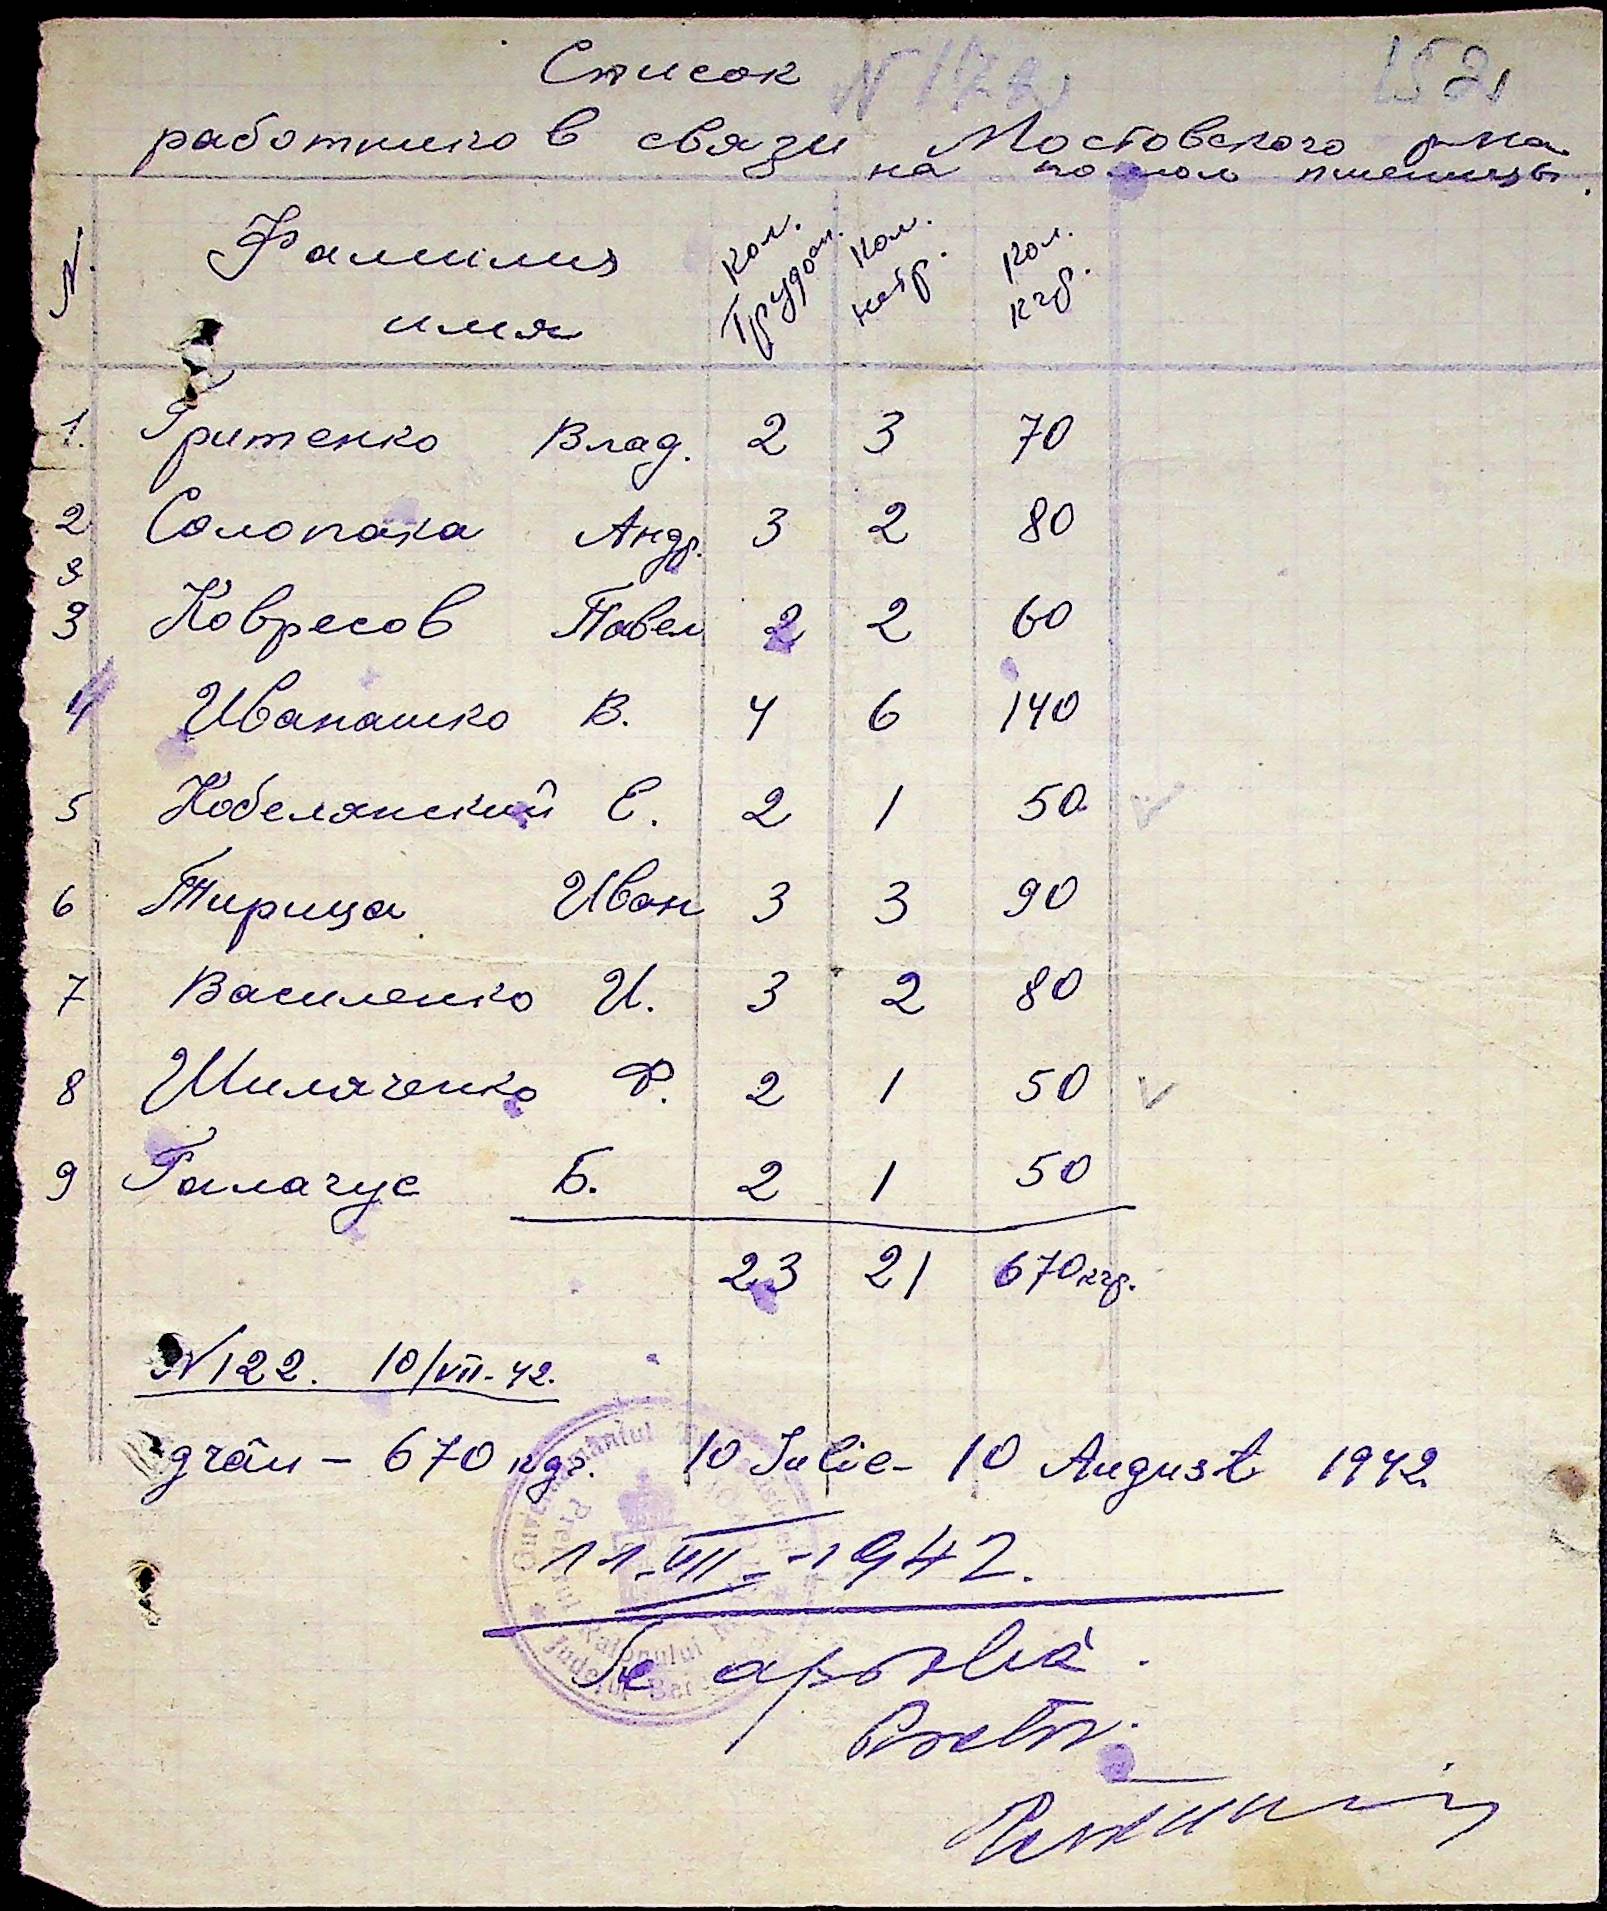 Список
N 122 152
работников связи Мостовского р-на
на помол пшеницы.
N. Фамилия имя Кол. Трудосп. Кол. нетр. Кол. кгр.
1. Гритенко Влад. 2 3 70
2 Солопака Андр. 3 2 80
3
3 Ковресов Павел 2 2 60
4 Иванашко В. 4 6 140
5 Кобелянский Е. 2 1 50
6 Тирица Иван 3 3 90
7 Василенко И. 3 2 80
8 Шиляченко Ф. 2 1 50
9 Галагус Б. 2 1 50
23 21 670 кгр.
N 122. 10/VII-42.
grâu – 670 кgr. 10 Iulie – 10 August 1942
11-VII-1942.
Se aprobă.
Pretor.